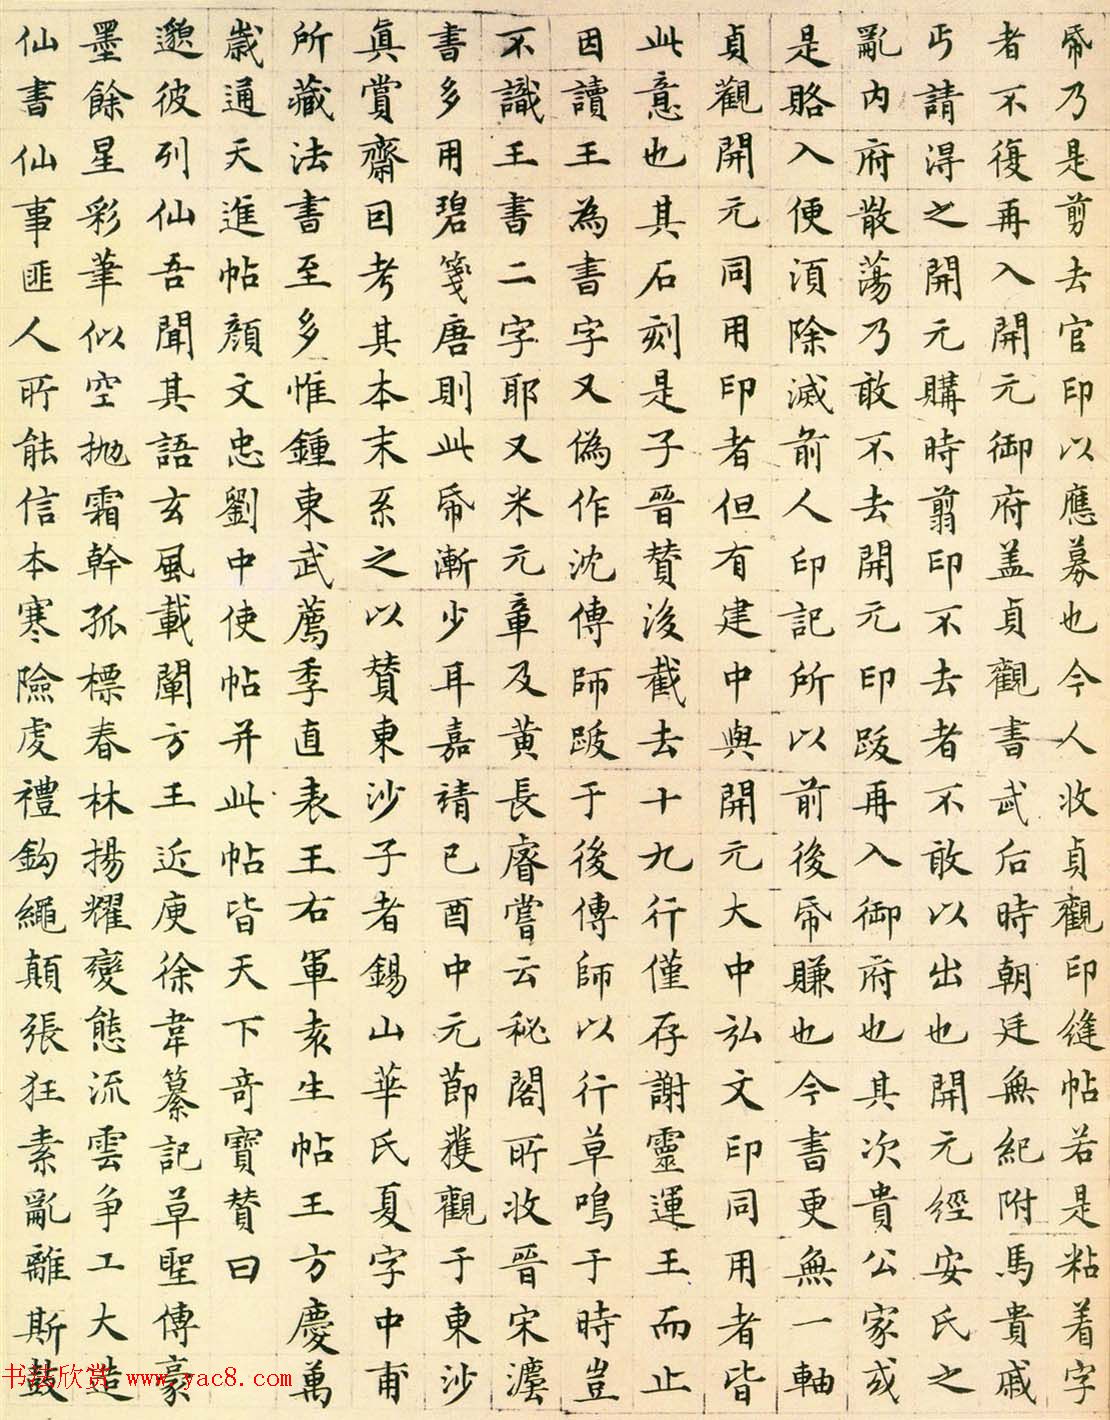 帋乃是剪去官印以應募也今人收貞觀印縫帖若是粘着字
者不復再入開元御府盖貞觀書武后時朝廷無紀附馬貴戚
丐請得之開元購時翦印不去者不敢以出也開元經安氏之
亂內府散蕩乃敢不去開元印跋再入御府也其次貴公家或
是賂入便須除滅前人印記所以前後帋賺也今書更無一軸
貞觀開元同用印者但有建中與開元大中弘文印同用者皆
此意也其石刻是子晉贊後截去十九行僅存謝靈運王而止
因讀王為書字又偽作沈傳師跋于後傳師以行草鳴于時豈
不識王書二字耶又米元章及黃長睿嘗云秘閣所收晉宋灋
書多用碧箋唐則此帋漸少耳嘉靖己酉中元節獲觀于東沙
真賞齋因考其本末系之以贊東沙子者錫山華氏夏字中甫
所藏法書至多惟鍾東武薦季直表王右軍袁生帖王方慶萬
歲通天進帖顏文忠劉中使帖并此帖皆天下奇寶贊曰
邈彼列仙吾聞其語玄風載闡方王近庾徐韋纂記草聖傳豪
墨餘星彩筆似空拋霜幹孤標春林揚耀變態流雲争工大造
仙書仙事匪人所能信本寒險虔禮鈎繩顛張狂素亂離斯鼓
书法欣赏 www.yac8.com